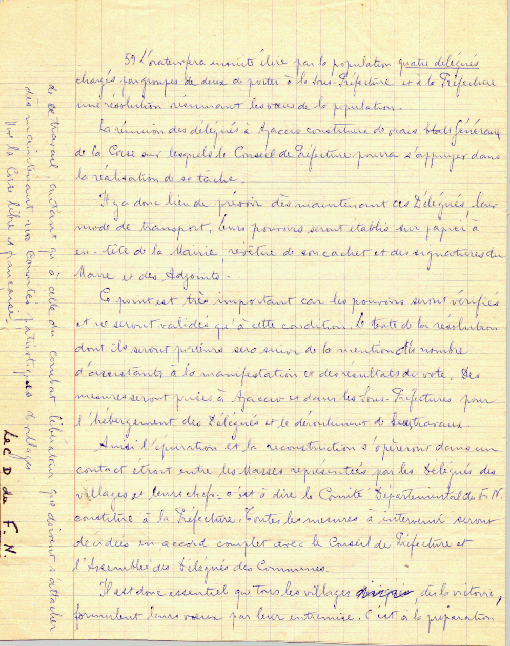 5º L'orateur fera ensuite élire par la population quatre délégués
chargés, par groupes de deux de porter à la Sous-Préfecture et à la Préfecture
une résolution résumant les vœux de la population.
La réunion des délégués à Ajaccio constituera de vrais Etats Généraux
de la Corse sur lesquels le Conseil de Préfecture pourra s'appuyer dans
la réalisation de sa tâche.
Il y a donc lieu de prévoir dès maintenant ces Délégués, leur
mode de transport, leurs pouvoirs seront établis sur papier à
en-tête de la Mairie, revêtue de son cachet et des signatures du
Maire et des Adjoints.
Ce point est très important car les pouvoirs seront vérifiés
et ne seront validés qu'à cette condition. Le texte de la résolution
dont ils seront porteurs sera suivi de la mention du nombre
d'assistants à la manifestation et des résultats de vote. Des
mesures seront prises à Ajaccio et dans les Sous-Préfectures pour
l'hébergement des Délégués et le déroulement de travaux.
Ainsi l'épuration et la reconstruction s'opéreront dans un
contact étroit entre les Masses représentées par les Délégués des
villages et leurs chefs: c'est à dire le Comité Départemental du F.N.
constitué à la Préfecture. Toutes les mesures à intervenir seront
décidées en accord complet avec le Conseil de Préfecture et
l'Assemblée des Délégués des Communes.
Il est donc essentiel que tous les villages, dès la victoire,
formulent leurs vœux par leur entremise. C'est à la préparation
de ce travail, autant qu'à celle du combat libérateur que doivent s'attacher
dès maintenant nos Comités patriotiques de villages
Vive la Corse libre et française,
Le C D du F. N.